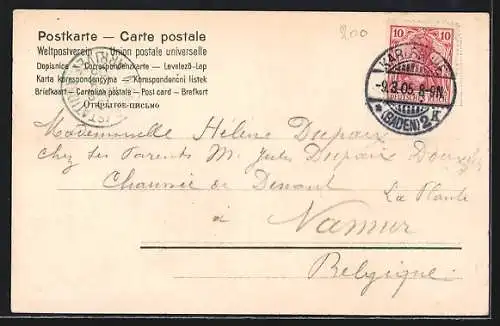 Postkarte — Carte postale
200
Weltpostverein — Union postale universelle
Dopisnice — Correspondenzkarte — Levelező-Lap
Karta korespondencyjna — Korespondenční lístek
Briefkart — Cartolina postale — Post card — Brefkort
Открытое письмо
10 10
DEUTSCHES REICH
KARLSRUHE
-9.3.05. 8-9N.
* (BADEN) 2K
Mademoiselle Hélène Dupaix
chez ses Parents M. Jules Dupaix
Chaussée de Dinant La Plante
à
Namur
Belgique